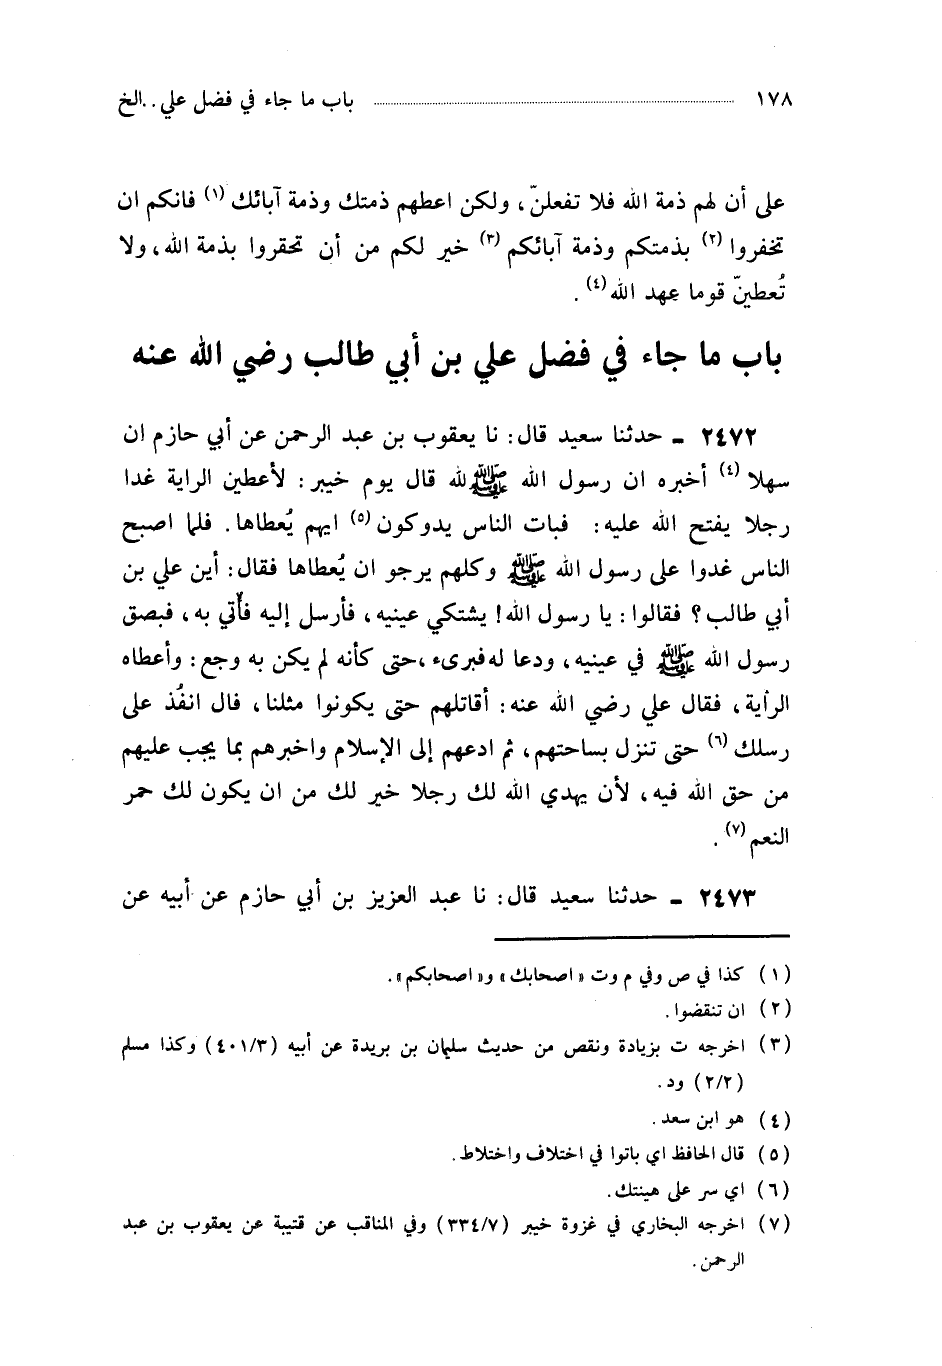 ١٧٨ باب ما جاء في فضل علي . . الخ
على أن لهم ذمة الله فلا تفعلنّ، ولكن اعطهم ذمتك وذمة آبائك (١) فانكم ان
تخفروا (٢) بذمتكم وذمة آبائكم (٣) خير لكم من أن تحقروا بذمة الله، ولا
تُعطينّ قوما عهد الله (٤) .
باب ما جاء في فضل علي بن أبي طالب رضي الله عنه
٢٤٧٢ ـ حدثنا سعيد قال: نا يعقوب بن عبد الرحمن عن أبي حازم ان
سهلا (٤) أخبره ان رسول الله ﷺ لله قال يوم خيبر: لأعطين الراية غدا
رجلا يفتح الله عليه: فبات الناس يدوكون (٥) ايهم يُعطاها. فلما اصبح
الناس غدوا على رسول الله ﷺ وكلهم يرجو ان يُعطاها فقال: أين علي بن
أبي طالب؟ فقالوا: يا رسول الله! يشتكي عينيه، فأرسل إليه فأتي به، فبصق
رسول الله ﷺ في عينيه، ودعا له فبرىء، حتى كأنه لم يكن به وجع: وأعطاه
الرأية، فقال علي رضي الله عنه: أقاتلهم حتى يكونوا مثلنا، قال انفُذ على
رسلك (٦) حتى تنزل بساحتهم، ثم ادعهم إلى الإسلام واخبرهم بما يجب عليهم
من حق الله فيه، لأن يهدي الله لك رجلا خير لك من ان يكون لك حمر
النعم (٧) .
٢٤٧٣ ـ حدثنا سعيد قال: نا عبد العزيز بن أبي حازم عن أبيه عن
(١) كذا في ص وفي م وت «اصحابك» و«اصحابكم».
(٢) ان تنقضوا.
(٣) اخرجه ت بزيادة ونقص من حديث سليمان بن بريدة عن أبيه (٤٠١/٣) وكذا مسلم
(٢/٢) ود.
(٤) هو ابن سعد.
(٥) قال الحافظ اي باتوا في اختلاف واختلاط.
(٦) اي سر على هينتك.
(٧) اخرجه البخاري في غزوة خيبر (٣٣٤/٧) وفي المناقب عن قتيبة عن يعقوب بن عبد
الرحمن.